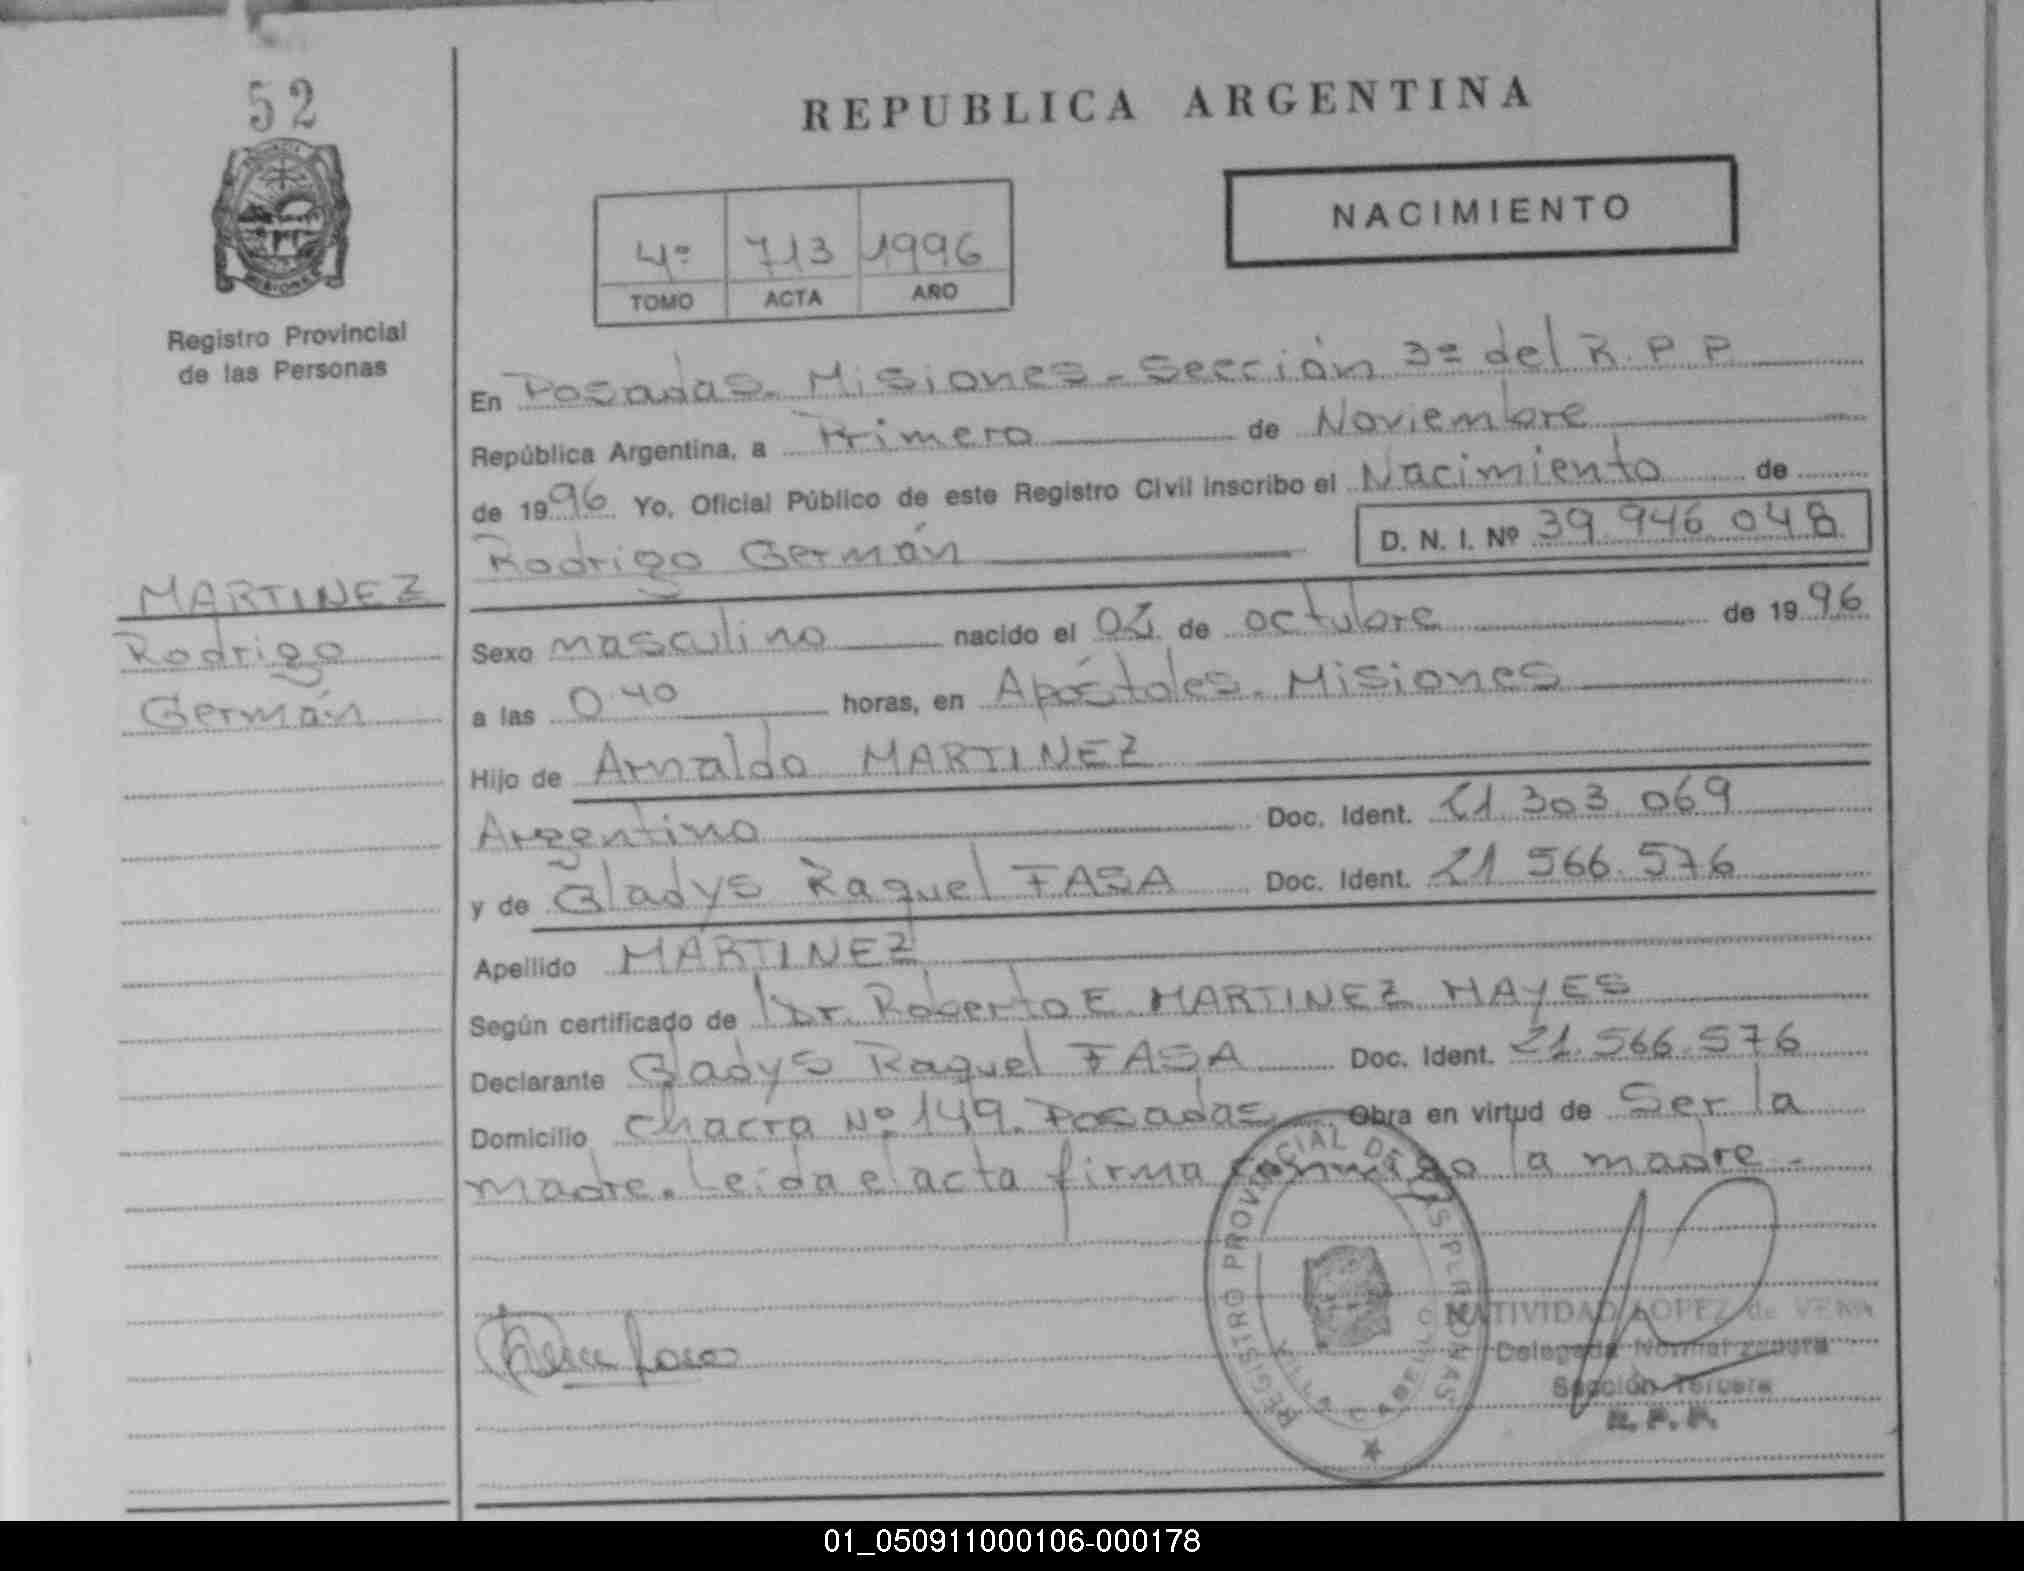 52
REPUBLICA ARGENTINA
NACIMIENTO
4º 713 1996
TOMO ACTA AÑO
Registro Provincial
de las Personas
En Posadas. Misiones. Sección 3º del R.P.P
República Argentina, a Primero de Noviembre
de 1996 Yo, Oficial Público de este Registro Civil inscribo el Nacimiento de
Rodrigo Germán D. N. I. Nº 39.946.048
MARTINEZ
Rodrigo
Germán
Sexo masculino nacido el de octubre de 1996
a las 0.40 horas, en Apóstoles. Misiones
Hijo de Arnaldo MARTINEZ
Argentino Doc. Ident. 21.303.069
y de Gladys Raquel FASA Doc. Ident. 21.566.576
Apellido MARTINEZ
Según certificado de Dr. Roberto E. MARTINEZ HAYES
Declarante Gladys Raquel FASA Doc. Ident. 21.566.576
Domicilio Chacra Nº 149. Posadas Obra en virtud de Ser la
madre. Leida el acta firma conmigo la madre.
REGISTRO PROVINCIAL DE LAS PERSONAS
NATIVIDAD LOPEZ de
Delegada
Sección Tercera
R. P. P.
01_050911000106-000178